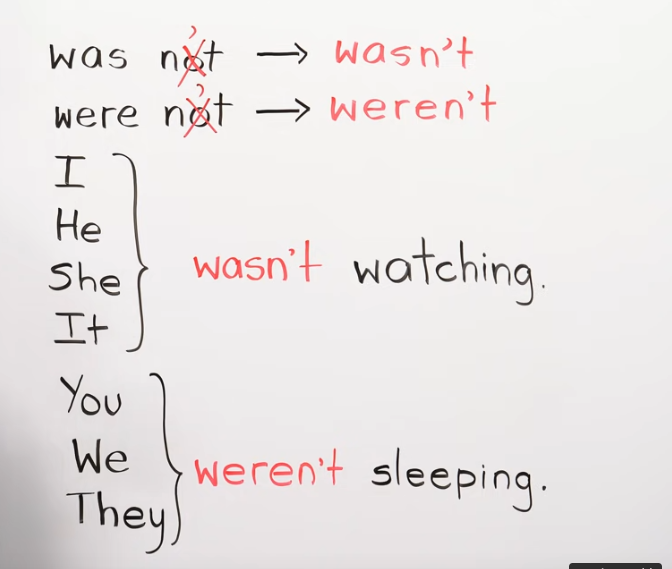 was not → wasn't
were not → weren't
I
He
She
It
wasn't watching.
You
We
They
weren't sleeping.